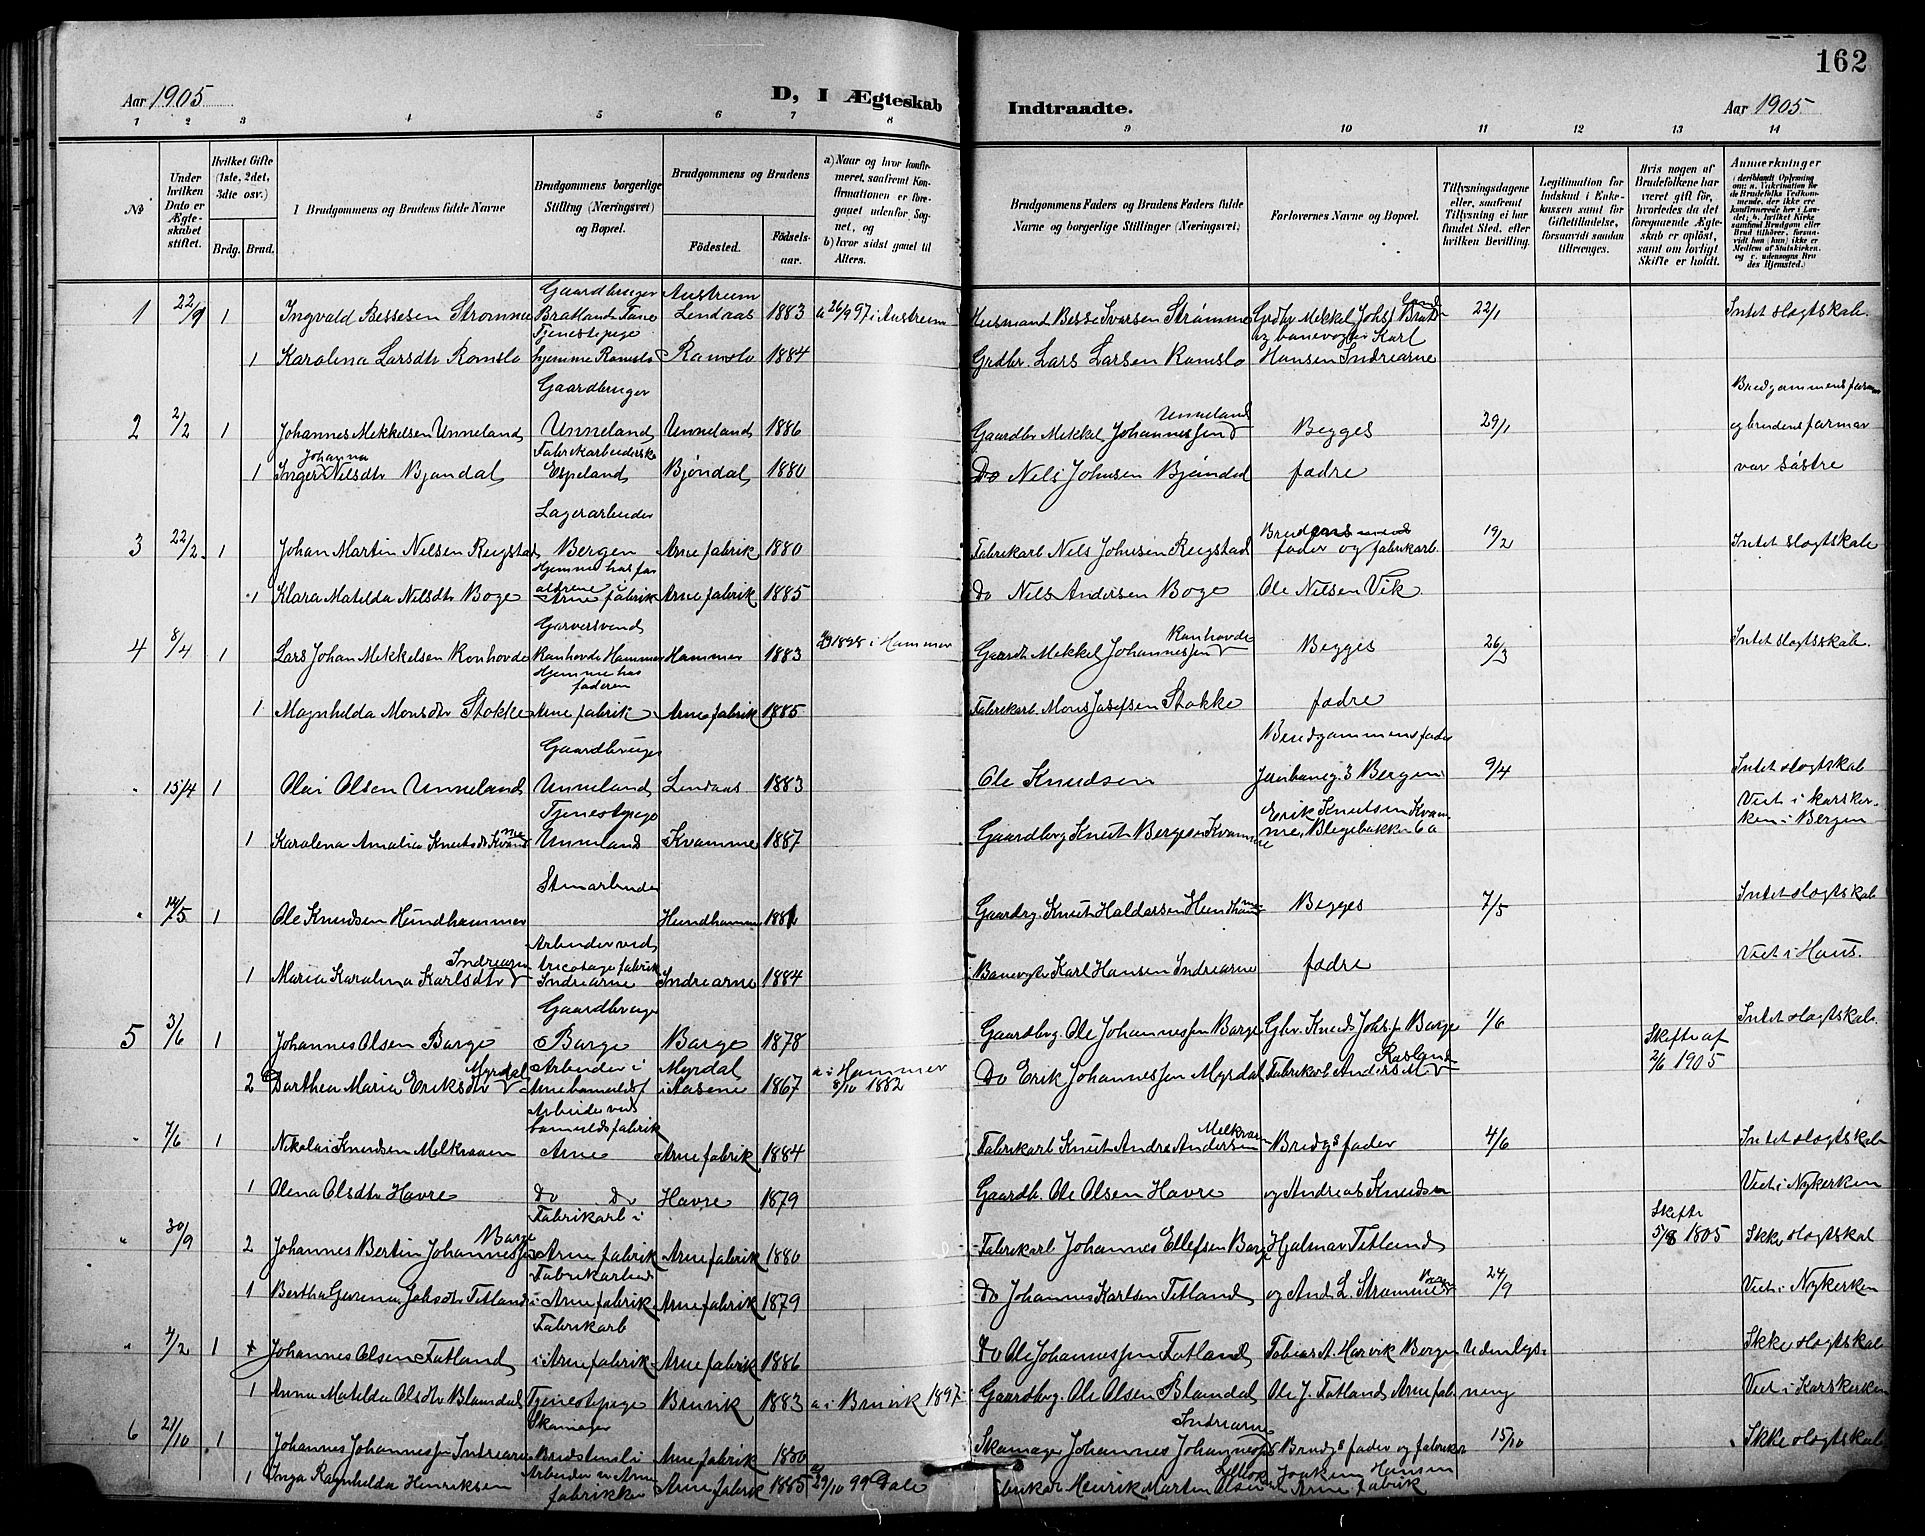 162
Aar 1905
D, I Ægteskab Indtraadte.
Aar 1905
1 2 3 4 5 6 7 8 9 10 11 12 13 14
No
Under hvilken Dato er Ægteskabet stiftet.
Hvilket Gifte (1ste, 2det, 3die osv.)
Brdg. Brud.
Brudgommens og Brudens fulde Navne
Brudgommens borgerlige Stilling (Næringsvei) og Bopæl.
Brudgommens og Brudens
Födested. Födselsaar.
a) Naar og hvor konfirmeret, saafremt Konfirmationen er foregaaet udenfor, Sognet, og
b) hvor sidst gaaet til Alters.
Brudgommens Faders og Brudens Faders fulde Navne og borgerlige Stillinger (Næringsvei)
Forlovernes Navne og Bopæl.
Tillysningsdagene eller, saafremt Tillysning ei har fundet Sted, efter hvilken Bevilling.
Legitimation for Indskud i Enkekassen samt for Giftetilladelse, forsaavidt saadan tiltrænges.
Hvis nogen af Brudefolkene har været gift för, hvorledes da det foregaaende Ægteskab er oplöst, samt om lovligt Skifte er holdt.
Anmærkninger
1 22/9 1 Ingvald Bessesen Strømme Gaardbruger Bratland Fane Austreim Lindaas 1883 a 26/9 97 i Austreim Husmand Besse Ivarsen Strømme Grdbr Mekkel Johs. Bratland 22/1 Intet slegtskab.
1 Karolina Larsdtr Romslo Tjenestepige hjemme Ramslo Ramslo 1884 Grdbr. Lars Larsen Ramslo og banevogter Karl Hansen Indrearne
2 2/2 1 Johannes Mekkelsen Unneland Gaardbruger Unneland Unneland 1886 Gaardbr Mekkel Johannessen Unneland Begges 29/1 Brudgommens farmor og brudens farmor
1 Inger Johanna Nilsdtr Bjøndal Fabrikarbeiderske Espeland Bjöndal 1880 Do Nils Johnsen Bjöndal fædre var søstre
3 22/2 1 Johan Martin Nilsen Reigstad Lagerarbeider Bergen Arne fabrik 1880 Fabrikarb Nils Johnsen Reigstad Brudens fader og fabrikarb 19/2 Intet slegtskab
1 Klara Matilda Nilsdtr Boge Hjemme hos forældrene i Arne fabrik Arne fabrik 1885 Do Nils Andersen Boge Ole Nilsen Vik
4 8/4 1 Lars Johan Mekkelsen Ronhovde Garversvend Ranhovde Hammer Hammer 1883 1898 i Hammer Gaardb Mekkel Johannessen Ranhovde Begges 26/3 Intet slegtskab.
1 Magnhilda Monsdtr Stokke Hjemme hos faderen Arne fabrik Arne fabrik 1885 Fabrikarb. Mons Josefsen Stokke fædre
" 15/4 1 Olai Olsen Unneland Gaardbruger Unneland Lindaas 1883 Ole Knudsen Brudgommens fader 3 Bergen 9/4 Intet slegtskab
1 Karolina Amalia Knutsdtr Kvamme Tjenestepige Unneland Kvamme 1887 Gaardbrg Knut Bergesen Kvamme Erik Knutsen Kvamme, Blegebakken 6 a Viet i Korskerken i Bergen
" 14/5 1 Ole Knudsen Hundhammer Stenarbeider Hundhammer 1881 Gaardbrg. Knut Haldorsen Hundhammer Begges 7/5 Intet slegtskab
1 Maria Karolina Karlsdtr Indrearne Arbeider ved tricotagefabrik Indrearne Indrearne 1884 Banevogter Karl Hansen Indrearne fædre Viet i Haus.
5 3/6 1 Johannes Olsen Borge Gaardbruger Borge Borge 1878 Gaardbrg. Ole Johannessen Borge Gbr. Knud Johs.sen Borge 1/6 Intet slegtskab.
2 Dorthea Maria Eriksdtr Myrdal Arbeider i Arne bomuldsf Myrdal i Aasene 1867 a i Hammer 8/10 1882 Do Erik Johannessen Myrdal Fabrikarb Anders M Rasland Skifte af 2/6 1905
" 7/6 1 Nikolai Knudsen Melkraaen Arbeider ved bomuldsfabrik Arne Arne fabrik 1884 Fabrikarb Knut Andre Andersen Melkraaen Brudgs fader 4/6 Intet slegtskab
1 Olena Olsdtr Havre Do Do Havre 1879 Gaardb. Ole Olsen Havre og Andreas Knudsen Viet i Nykerken
" 30/9 2 Johannes Bertin Johannessen Borge Fabrikarb i Arne fabrik Arne fabrik 1880 Fabrikarb Johannes Ellefsen Borge Hjalmar Titland Skifte 5/8 1805 Ikke slegtskab
1 Bertha Gurina Johsdtr Titland Fabrikarbeid i Arne fabrik Arne fabrik 1879 Do Johannes Karlsen Titland og And L. Strømme 24/9 Viet i Nykerken
" 4/2 1 Johannes Olsen Fatland Fabrikarb i Arne fabrik Arne fabrik 1886 Do Ole Johannessen Fatland Tobias A. Harvik Bergen Uden lysning Ikke slegtskab
1 Anna Matilda Olsdtr Blamdal Tjenestepige Bruvik 1883 a i Bruvik 1897 Gaardbrg. Ole Olsen Blamdal Ole J. Fatland Arne fab Viet i Korskerken
6 21/10 1 Johannes Johannessen Indrearne Skomager Arne fabrik 1880 Skomager Johannes Johannessen Indrearne Brudgs fader og fabrikar 15/10 Ikke slegtskab
1 Inga Ragnhilda Henriksen Arbeider v Arne fabrikker Arne fabrik 1885 29/10 99 Dale Henrik Martin Olsen Joakim Hansen Arne fabrik